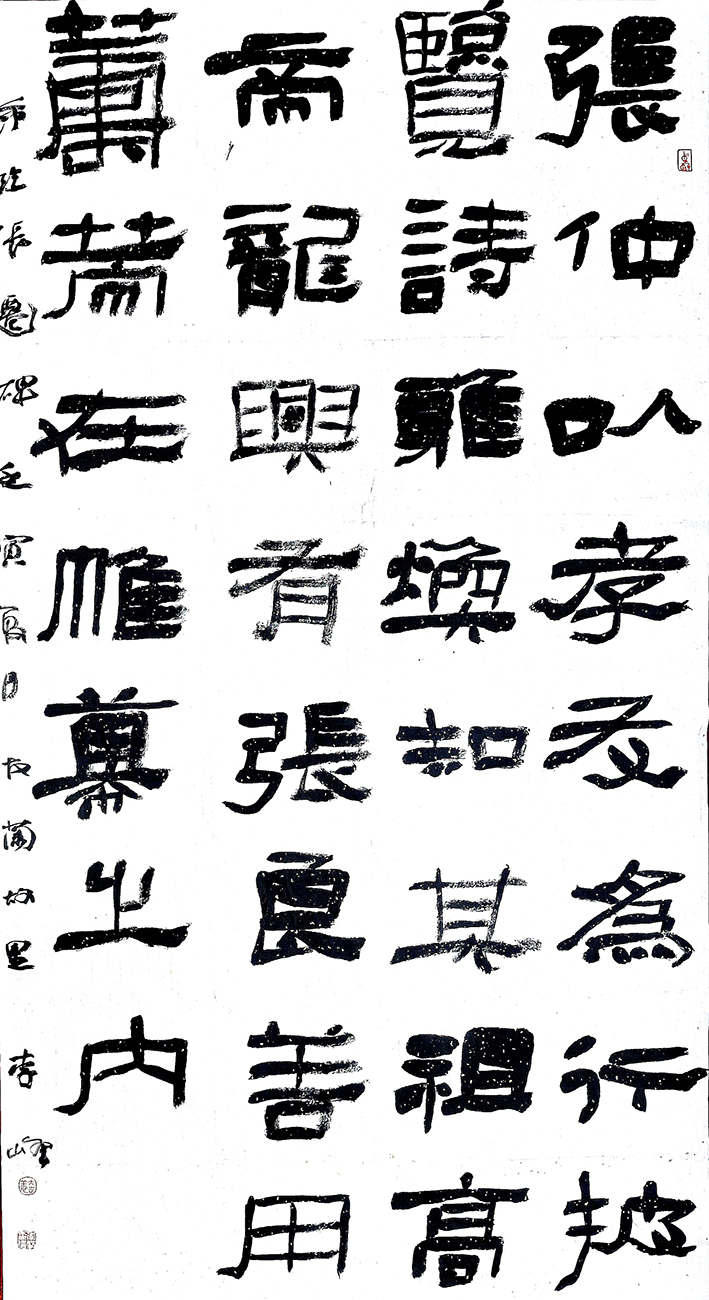 張仲以孝友為行披
覽詩雅煥知其祖高
帝龍興有張良善用
籌策在帷幕之內
臨張遷碑壬寅夏月於蘭里李峰